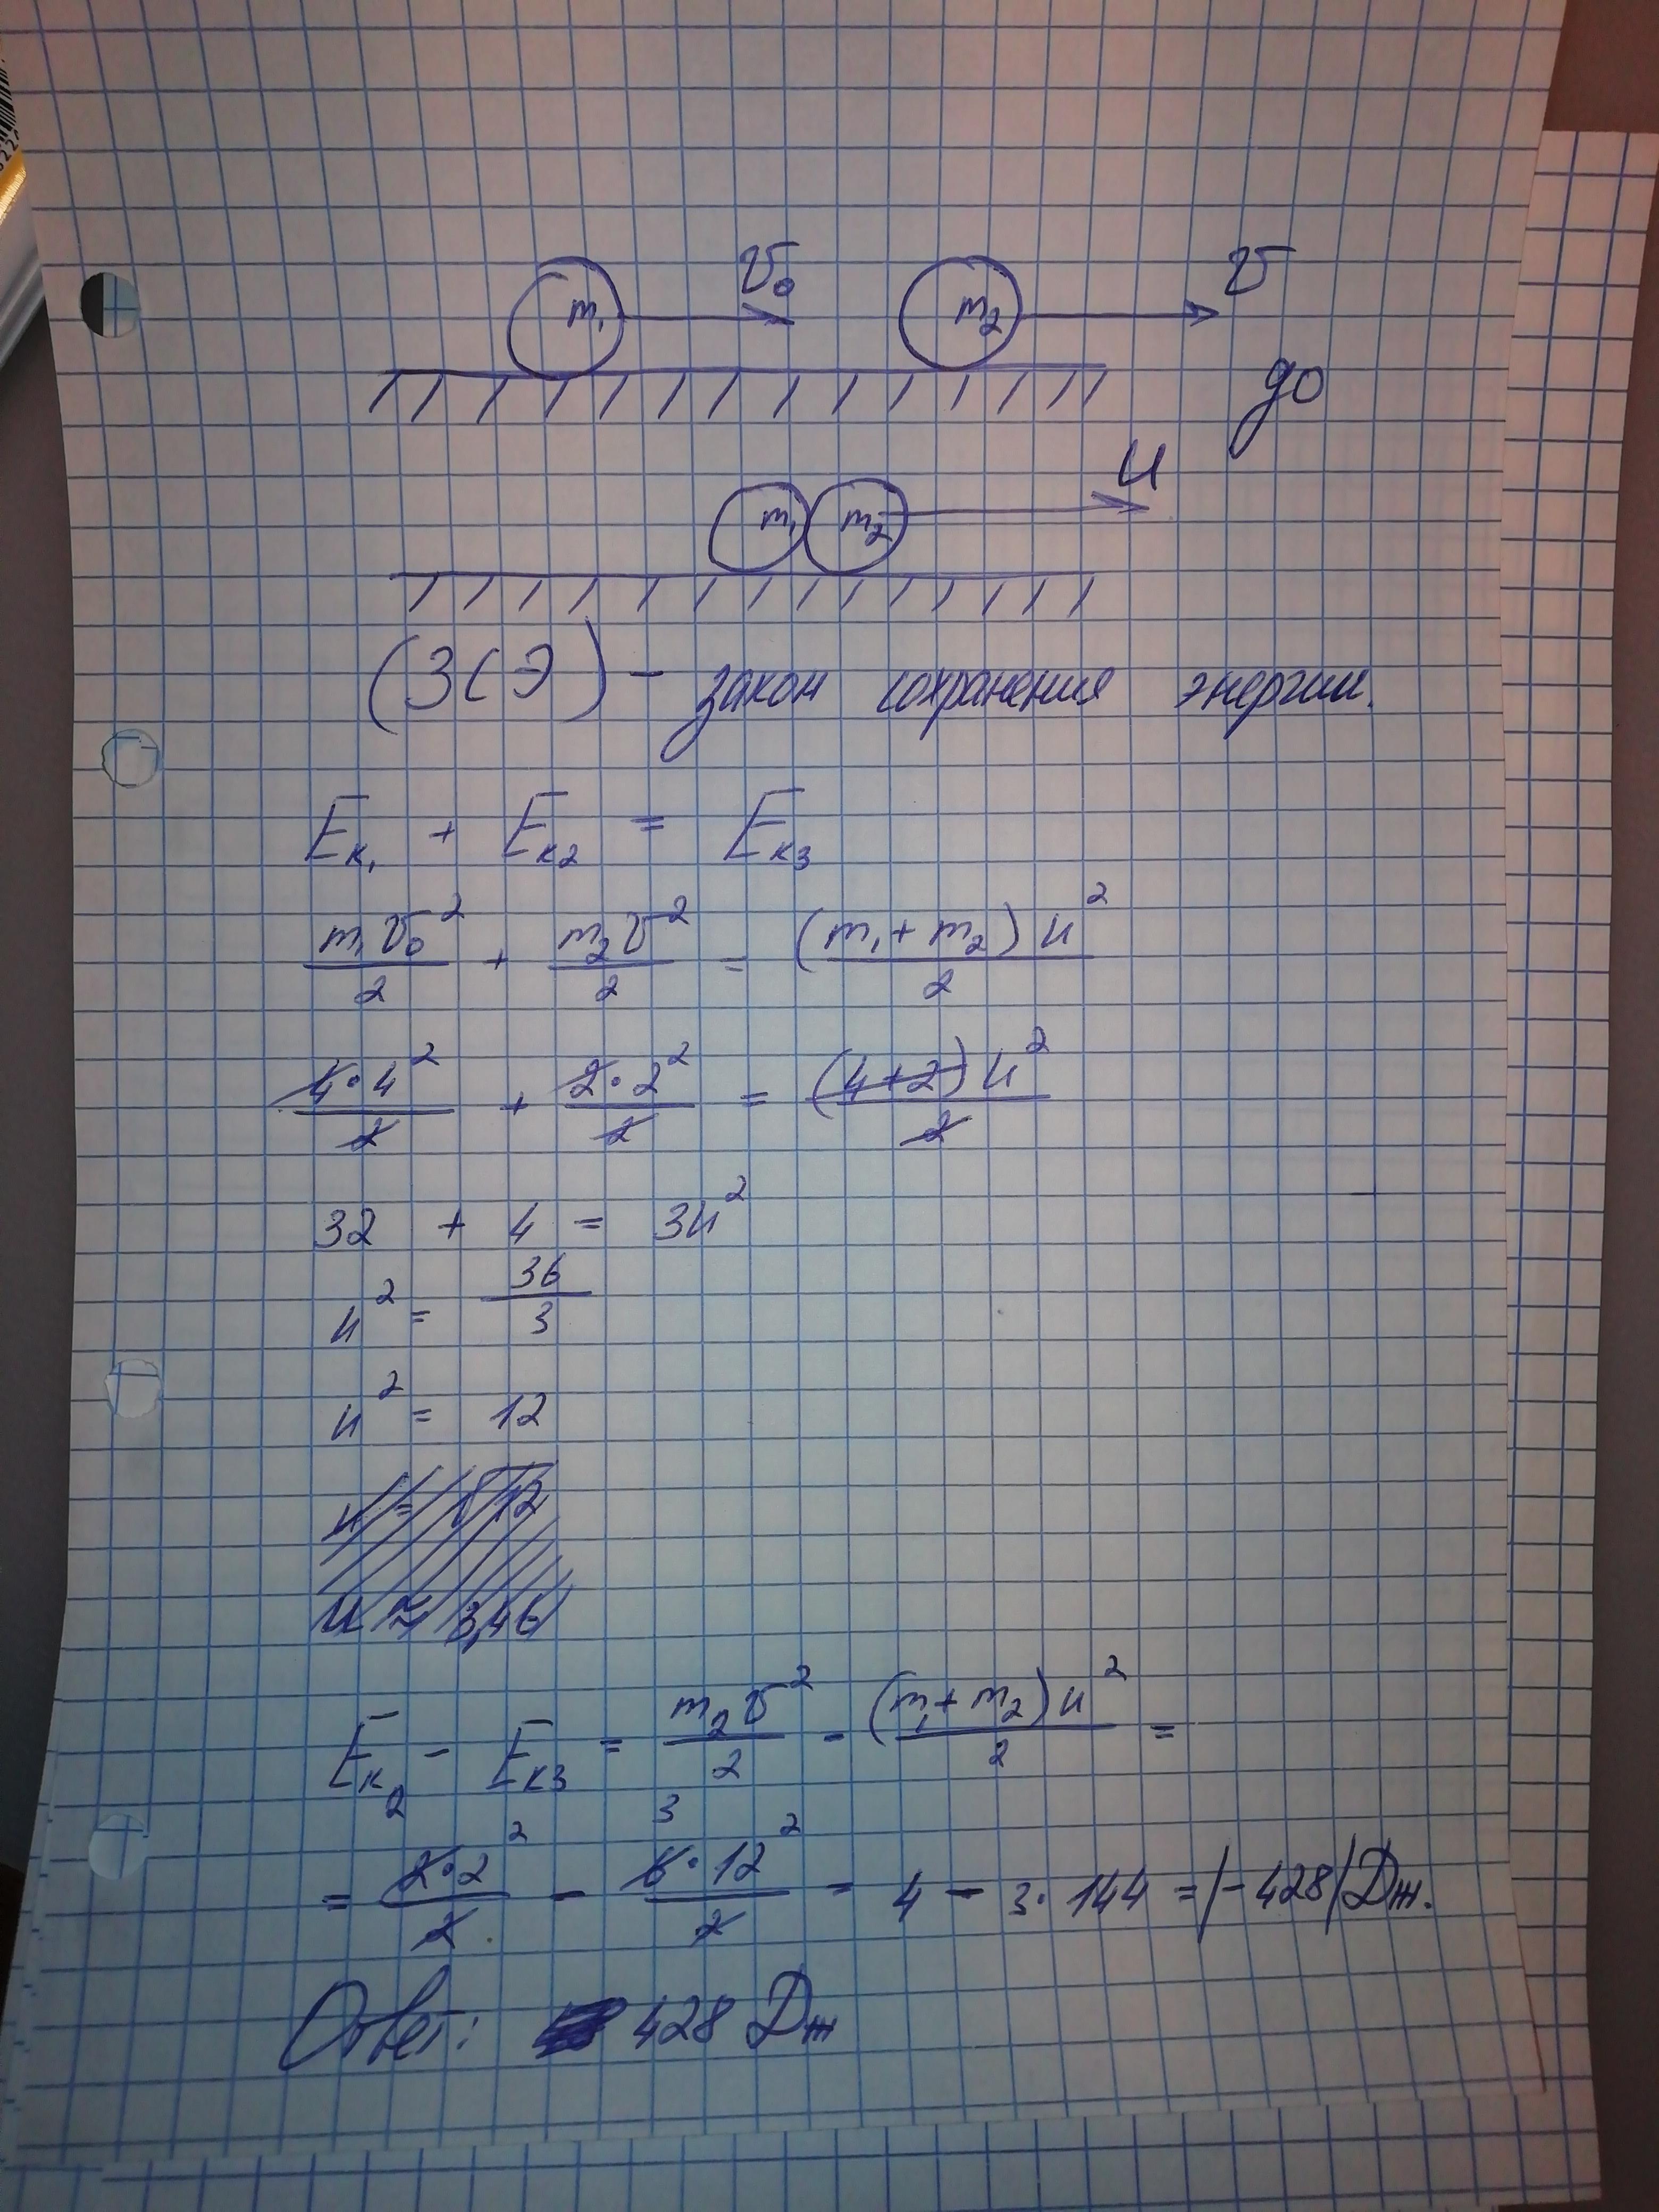 m₁ v₀ m₂ v
до
u
m₁ m₂
(ЗСЭ) - закон сохранения энергии.
Eк₁ + Eк2 = Eк3
m₁v₀²/2 + m₂v²/2 = (m₁+m₂)u²/2
4·4²/2 + 2·2²/2 = (4+2)u²/2
32 + 4 = 3u²
u² = 36/3
u² = 12
u = √12
u ≈ 3,46
Eк2 - Eк3 = m₂v²/2 - (m₁+m₂)u²/2 =
3
= 2·2²/2 - 6·12²/2 = 4 - 3·144 = |-428| Дж.
Ответ: 428 Дж